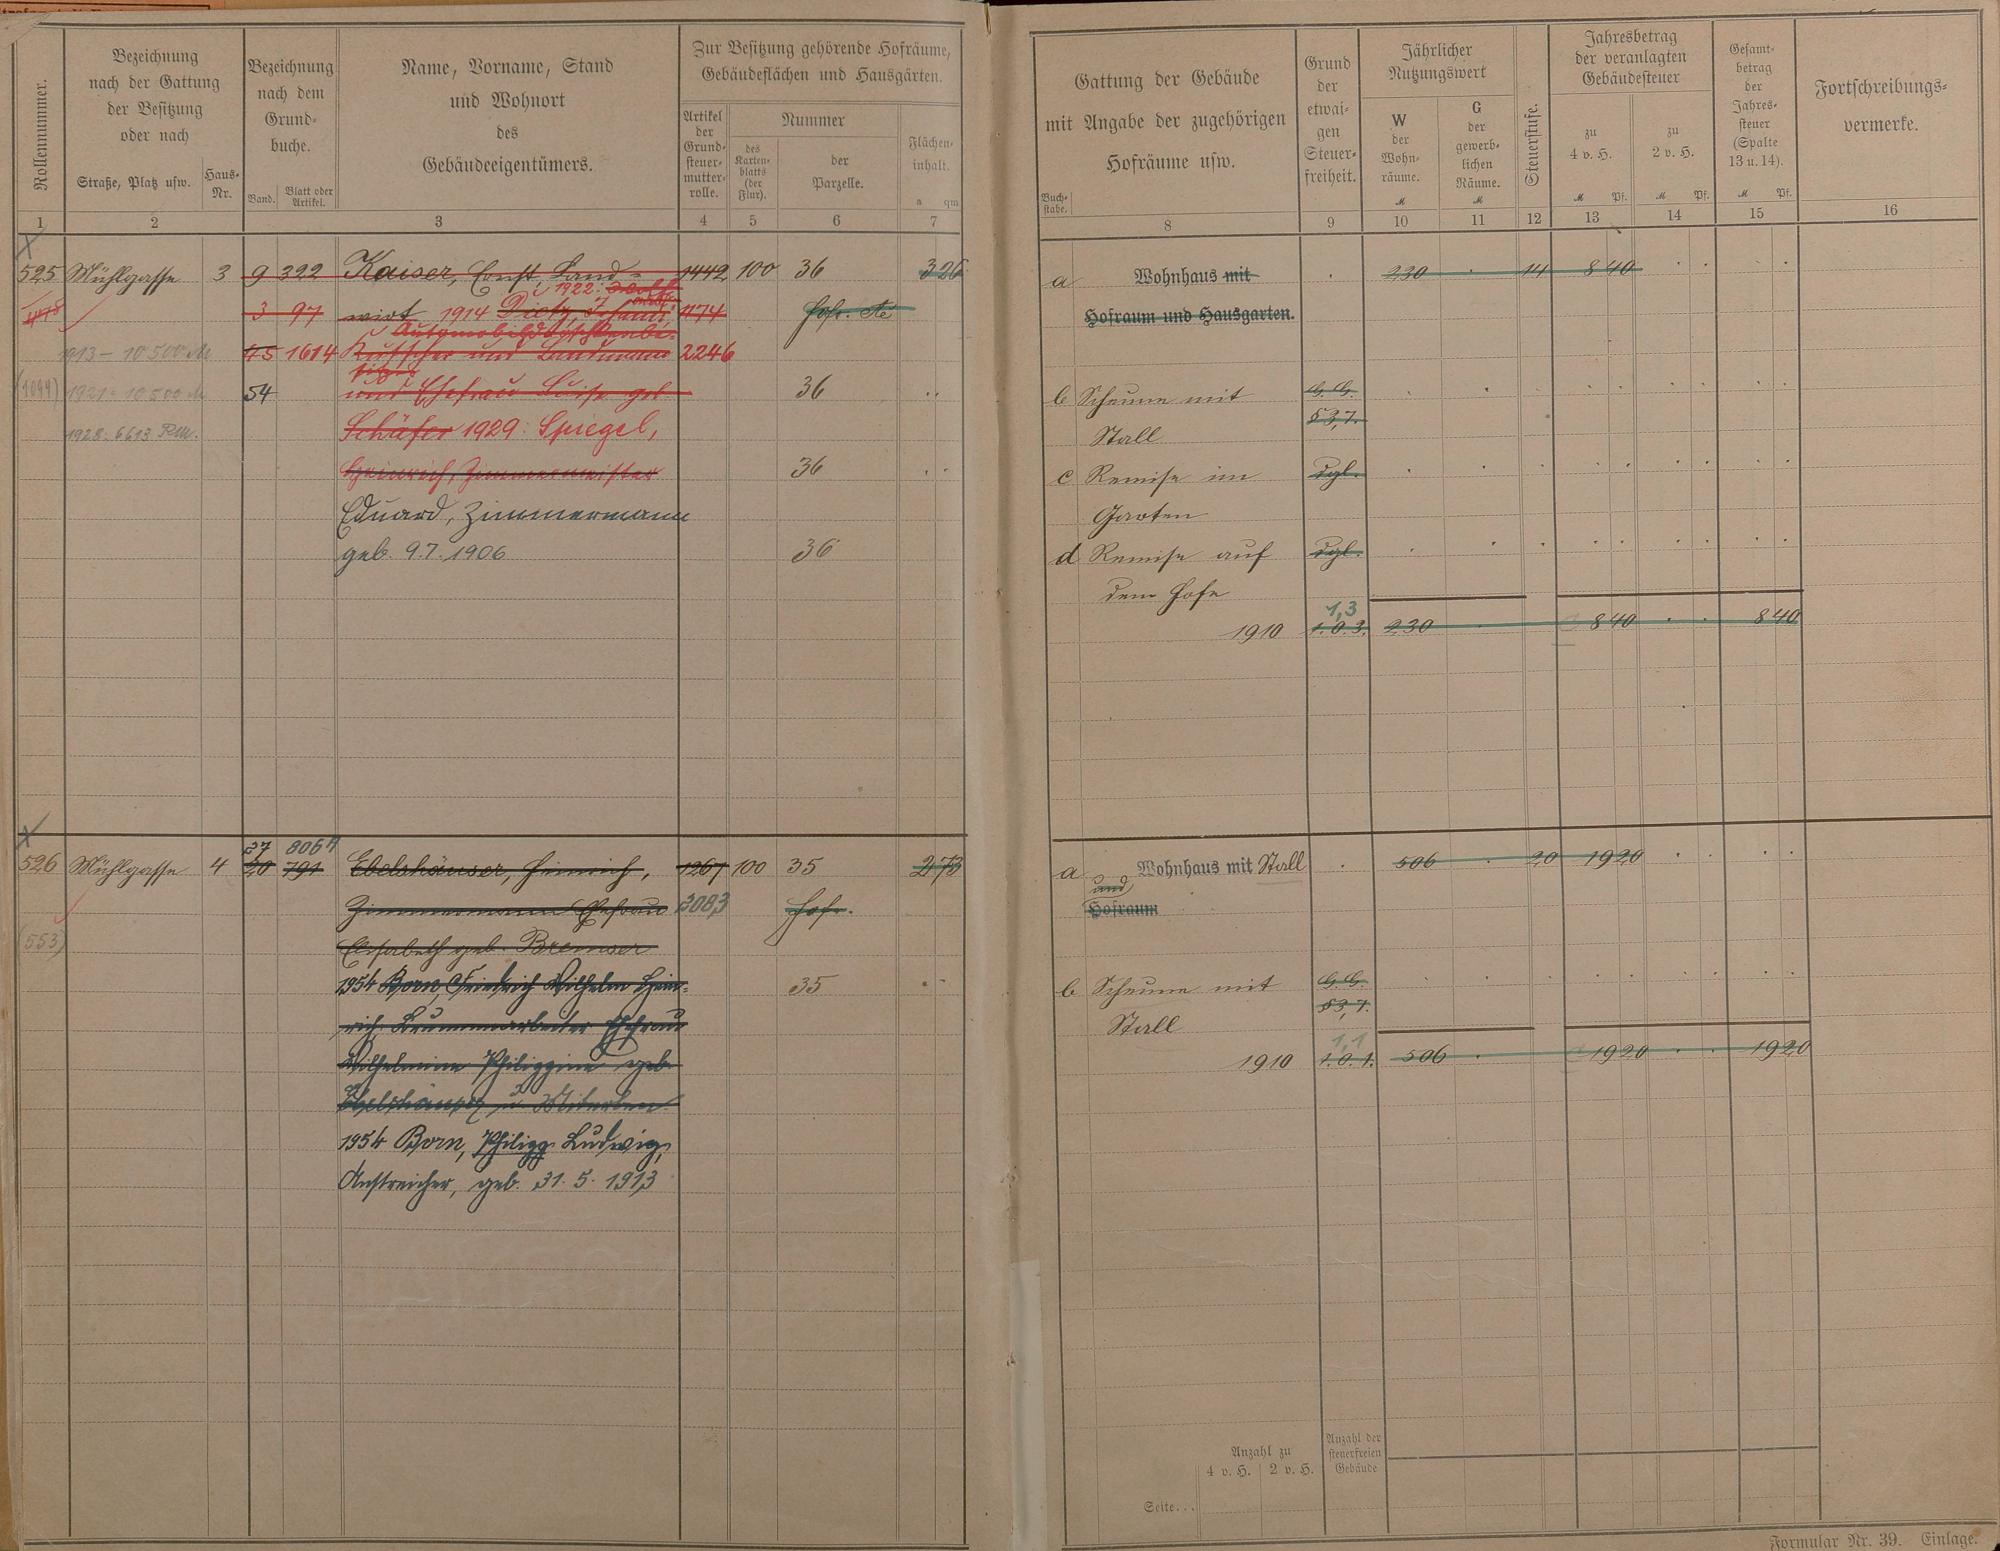 Rollennummer.
Bezeichnung
nach der Gattung
der Besitzung
oder nach
Straße, Platz usw.
Haus-
Nr.
Bezeichnung
nach dem
Grund-
buche.
Band.
Blatt oder
Artikel.
Name, Vorname, Stand
und Wohnort
des
Gebäudeeigentümers.
Zur Besitzung gehörende Hofräume,
Gebäudeflächen und Hausgärten.
Artikel
der
Grund-
steuer-
mutter-
rolle.
Nummer
des
Karten-
blatts
(der
Flur).
der
Parzelle.
Flächen-
inhalt.
a qm
1 2 3 4 5 6 7
525 Mühlgasse 3 9 392 Kaiser, Ernst, Land- 1442 100 36 326
1922:
3 97 wirt 1914 Dietz, 1174 Hofr. etc
1913 – 10500 M 45 1614 Kutscher und Landmann 2246
(1094) 1921 = 10500 M 54 und Ehefrau Luise geb 36
1928: 6613 RM. Schäfer 1929: Spiegel,
Heinrich, Zimmermeister 36
Eduard, Zimmermann
geb. 9.7.1906 36
37 8064
526 Mühlgasse 4 20 791 Ebelshäuser, Heinrich, 1267 100 35 273
Zimmermann Ehefrau 3083 Hofr.
(553) Elisabeth geb. Bremser
1954 Born, Friedrich Wilhelm Hein- 35
rich, Brunnenarbeiter Ehefrau
Wilhelmine Philippine geb.
Ebelshäuser u. Miterben
1954 Born, Philipp Ludwig,
Anstreicher, geb. 31. 5. 1913
Gattung der Gebäude
mit Angabe der zugehörigen
Hofräume usw.
Buch-
stabe.
Grund
der
etwai-
gen
Steuer-
freiheit.
Jährlicher
Nutzungswert
W
der
Wohn-
räume.
M
G
der
gewerb-
lichen
Räume.
M
Steuerstufe.
Jahresbetrag
der veranlagten
Gebäudesteuer
zu
4 v. H.
M Pf.
zu
2 v. H.
M Pf.
Gesamt-
betrag
der
Jahres-
steuer
(Spalte
13 u. 14).
M Pf.
Fortschreibungs-
vermerke.
8 9 10 11 12 13 14 15 16
a Wohnhaus mit 230 14 8 40
Hofraum und Hausgarten.
b Scheune mit G. G.
Stall § 3,7.
c Remise im dgl.
Garten
d Remise auf dgl.
dem Hofe
1,3
1910 1. 0. 3. 230 8 40 8 40
a Wohnhaus mit Stall 506 20 19 20
und
Hofraum
b Scheune mit G. G.
Stall § 3, 7.
1,1
1910 1. 0. 1. 506 19 20 19 20
Anzahl zu
4 v. H. 2 v. H.
Anzahl der
steuerfreien
Gebäude
Seite...
Formular Nr. 39. Einlage.